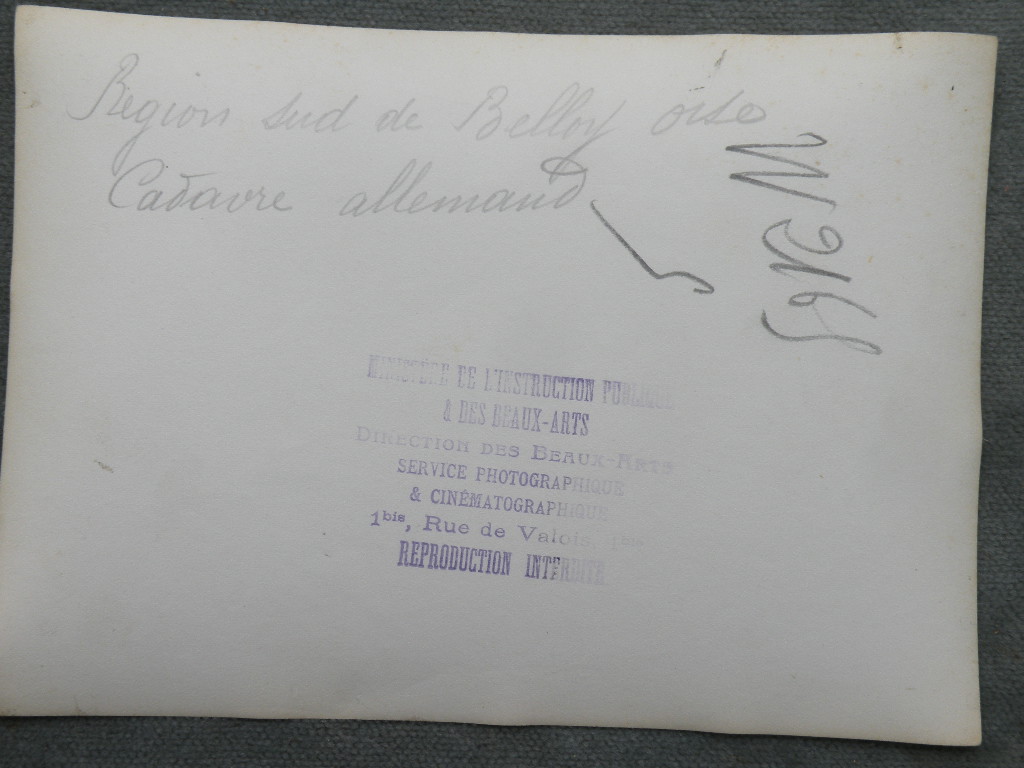 Region sud de Belloy oise
Cadavre allemand
MINISTÈRE DE L'INSTRUCTION PUBLIQUE
& DES BEAUX-ARTS
DIRECTION DES BEAUX-ARTS
SERVICE PHOTOGRAPHIQUE
& CINÉMATOGRAPHIQUE
1bis, Rue de Valois, 1bis
REPRODUCTION INTERDITE